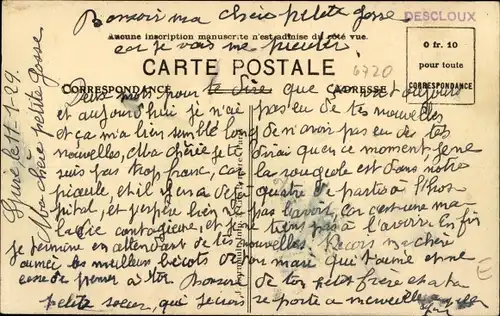 Bonsoir ma chérie petite gosse
DESCLOUX
Aucune inscription manuscrite n'est admise du côté vue.
car je vais me pieuter
0 fr. 10
pour toute
CORRESPONDANCE
6720
CARTE POSTALE
CORRESPONDANCE
ADRESSE
Givet le 11-1-29.
Ma chérie petite Gosse
Deux mots pour te dire que c'est aujourd
et aujourd'hui je n'ai pas eu de tes nouvelles
et ça m'a bien semblé long de n'avoir pas eu des tes
nouvelles, Ma chérie je te dirai qu'en ce moment, je ne
suis pas trop franc, car la rougeole est dans notre
piaule, et il y en a déjà quatre de partis à l'hos
pital, et j'espère bien ne pas l'avoir, car c'est une ma
ladie contagieuse, et je ne tiens pas à l'avoir. Enfin
je termine en attendant de tes nouvelles. Reçois ma chérie
aimée les meilleurs bécots de ton mari qui t'aime et ne
cesse de penser à toi. Bonsoir de ton petit frère et à ta
petite soeur, qui je crois se porte à merveille